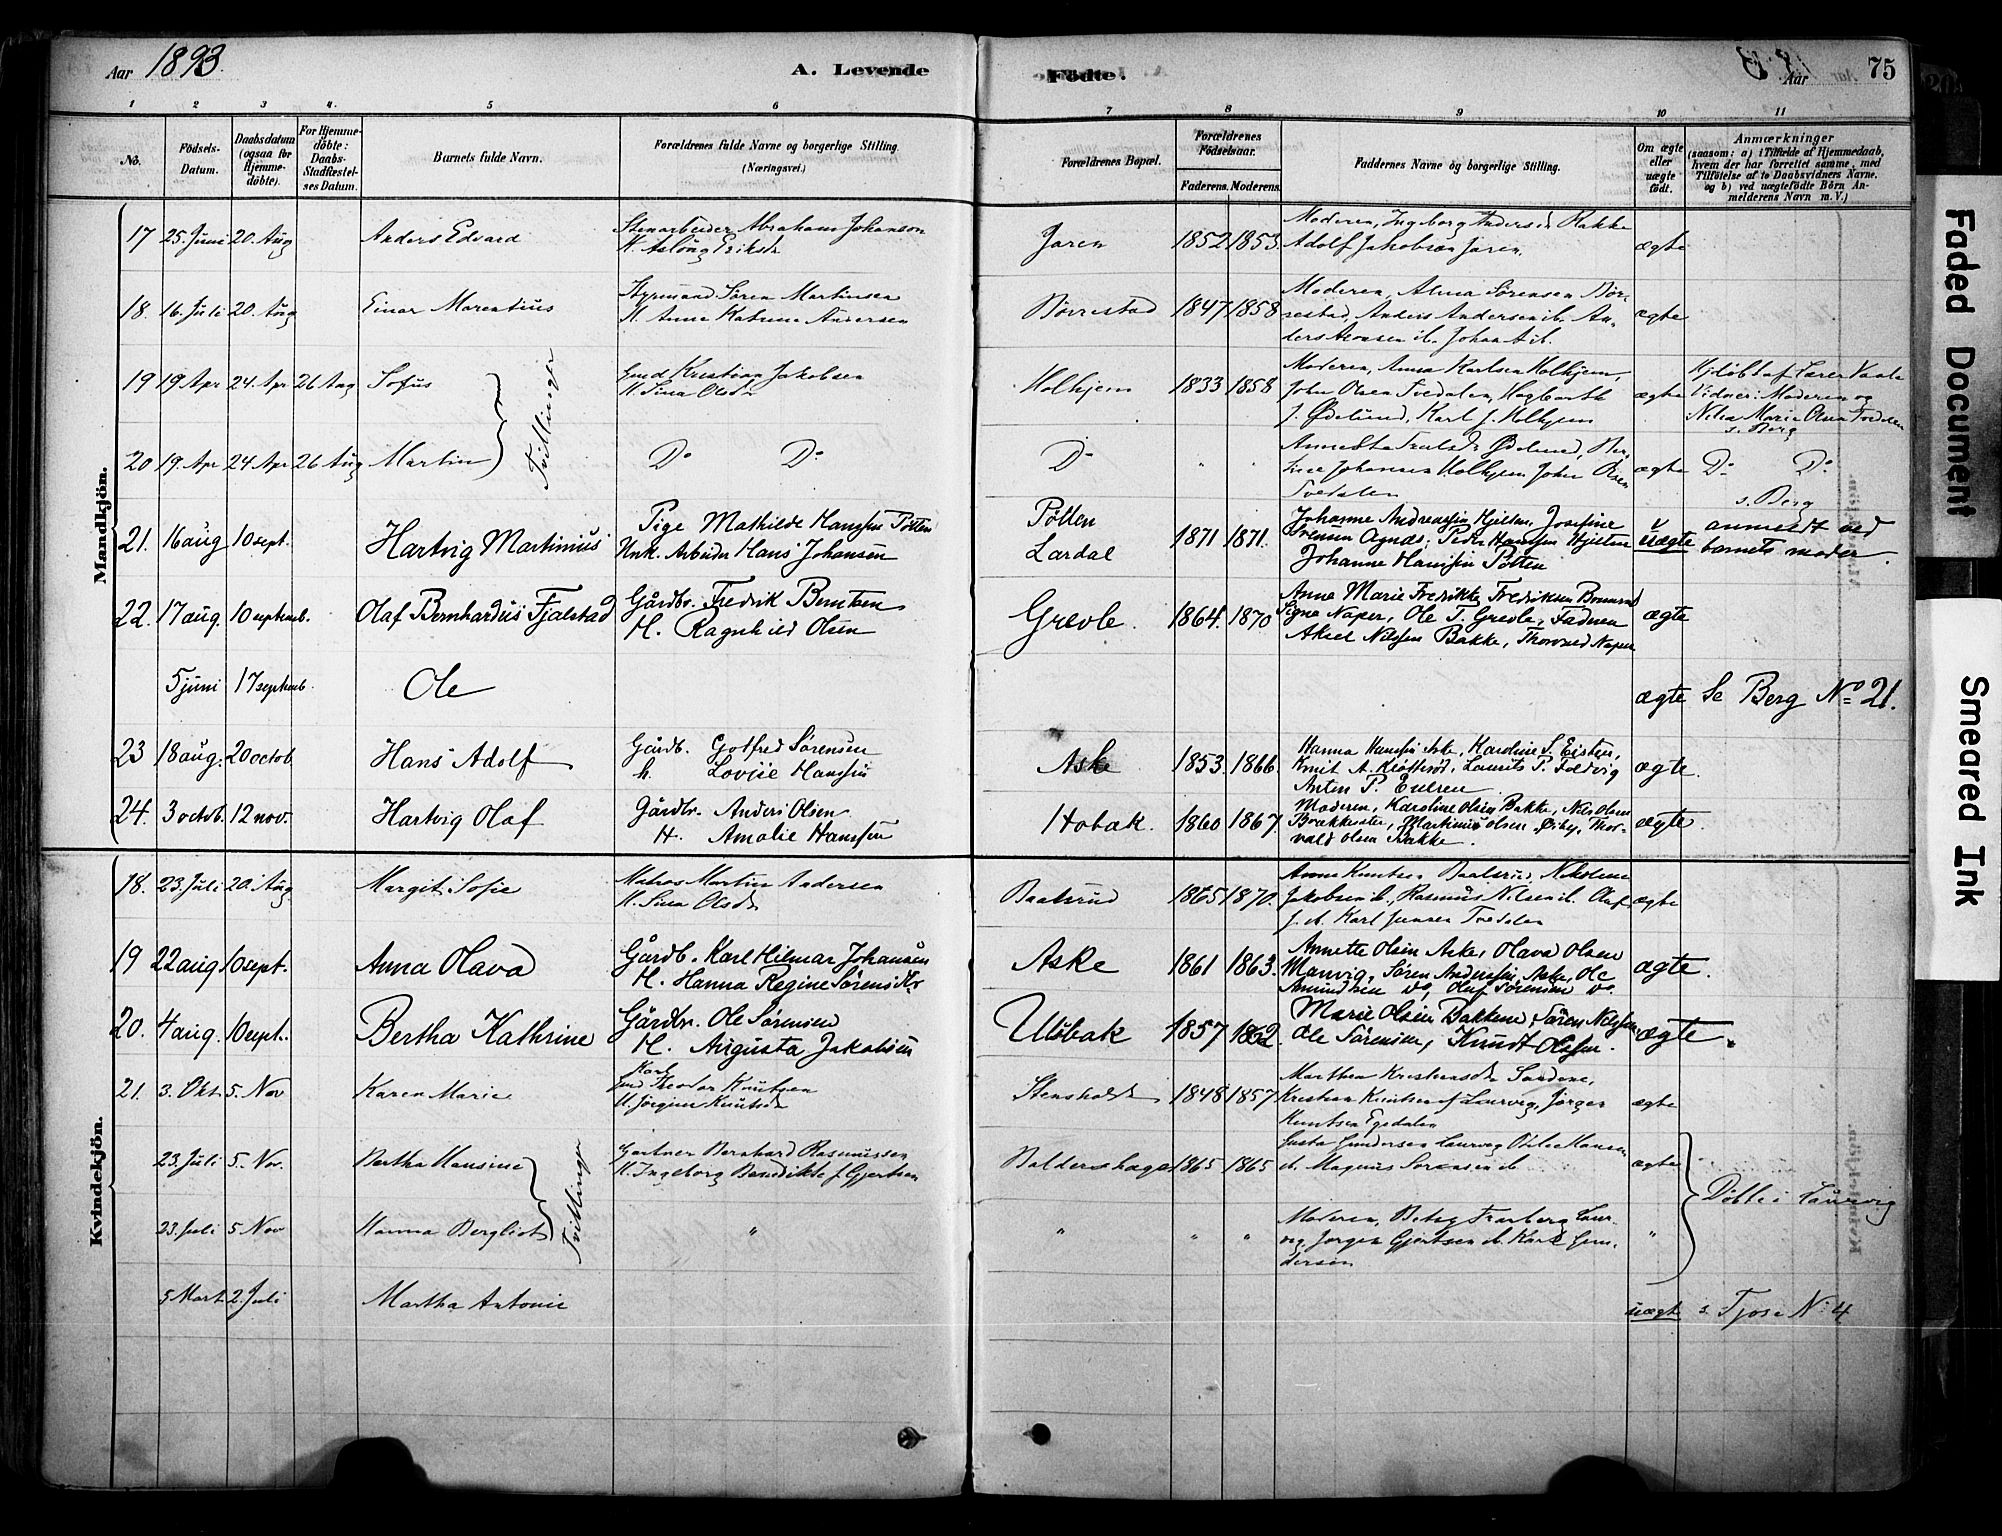 Aar 1893.
A. Levende Födte.
Aar
75
1 2 3 4. 5 6 7 8 9 10 11
No.
Födsels-Datum.
Daabsdatum (ogsaa for Hjemme-döbte).
For Hjemme-döbte: Daabs-Stadfæstel-ses Datum.
Barnets fulde Navn.
Forældrenes fulde Navne og borgerlige Stilling. (Næringsvei.)
Forældrenes Bopæl.
Forældrenes Födselsaar.
Faderens. Moderens.
Faddernes Navne og borgerlige Stilling.
Om ægte eller uægte födt.
Anmærkninger
(saasom: a) i Tilfælde af Hjemmedaab, hvem der har forrettet samme, med Tilföielse af to Daabsvidners Navne. og b) ved uægtefödte Börn An-melderens Navn m. V.)
Mandkjön.
17 25. Juni 20. Aug Anders Edvard
Stenarbeider Abraham Johanson
H. Aslöug Eriksdr
Jaren 1852 1853
Moderen, Ingeborg Andersen Rakke
Adolf Jakobsen Jaren.
ægte
18. 16. Juli 20. Aug Einar Marentius
Styrmand Søren Martinsen
H. Anne Katrine Andersen
Børrestad 1847 1858
Moderen, Alma Sørensen Bør-
restad, Anders Andersen ib. An-
ders Aronsen ib. Johan A ib.
ægte
19 19 Apr 24. Apr 26 Aug Sofus
Tvillinger
Gmd Kristian Jakobsen
H. Sina Olsdr
Holhjem 1833 1858
Moderen, Anna Karlsen Holhjem,
John Olsen Tvedalen, Hagbarth
J. Ødelund, Karl J. Holhjem
ægte
Hjdöbt af Lærer Vaale
Vidner: Moderen og
Nilia Marie Olsen Tvedalen
s. Berg
20 19. Apr 24 Apr 26 Aug Martin
Do Do
Do " "
Ødelund, Ber-
Johansen Holhjem John Olsen
Tvedalen
ægte Do Do
s. Berg
21. 16 aug 10 sept. Hartvig Martinius
Pige Mathilde Hanssen Pötten
Unk. Arbeider Hans Johansen
Pötten
Lardal
1871 1871.
Johanne Andreassen Hjelten, Josefine
Svensen Agnæs, Peder Hanssen Hjelten
Johanne Hanssen Pötten
uægte
anmeldt ved
barnets moder
22. 17 aug. 10 septemb. Olaf Bernhardus Fjalstad
Gårdbr. Fredrik Berntsen
H. Ragnhild Olsen
Grevle. 1864. 1870
Anne Marie Fredrikke Fredriksen
Signe Naper, Ole T. Grevle, Faderen
Aksel Nilssen Bakke, Thorvald Naper
ægte
5 juni 17 septemb. Ole
ægte Se Berg No 21.
23 18 aug. 20 octob. Hans Adolf
Gårdb. Gotfred Sørensen
h. Lovise Hanssen
Aske 1853. 1866.
Hanna Hanssen Aske, Karoline S. Eisten,
Knut A. Klåtterød, Laurits P. Foldvig
Anton P.
ægte.
24. 3 octob. 12 nov. Hartvig Olaf
Gårdbr. Anders Olsen
H. Amalie Hanssen
Hobæk. 1860 1867
Moderen, Karoline Olsen Bakke, Nils Olsen
Martinius Olsen Østby, Thor-
vald Olsen Bakke.
ægte.
Kvindekjön.
18. 23. Juli 20. Aug. Margit Sofie
Matros Martin Andersen
H. Sina Olsdr
Baalsrud 1865 1870.
Anne Knutsen Baalsrud, Nikoline
Jakobsen ib., Rasmus Nilsen ib. Olaf
J. ib. Karl Jensen Tvedalen
ægte
19 22 aug 10 sept. Anna Olava
Gårdb. Karl Hilmar Johansen
H. Hanna Regine Sørensdtr
Aske 1861 1863.
Annette Olsen Aske, Olava Olsen
Manvig, Søren Anderssen Aske, Ole
Amundsen do, Oluf Sørensen do.
ægte.
20. 4 aug. 10 sept. Bertha Kathrine
Gårdbr. Ole Sørensen
H. Augusta Jakobsen
Ulsbak 1857 1862.
Marie Olsen Bakkene, Søren Nilssen,
Ole Sørensen, Knudt Olssen.
ægte.
21. 3. Okt. 5. Nov Karen Marie
Karl
Gmd Theodor Knutsen
H. Jørgine Knutsdr
Stensholt 1848 1857
Marthea Kristensdr Sandene,
Kristian Knutsen af Laurvig, Jørgen
Knutsen Egedalen
ægte
23. Juli 5. Nov. Bertha Hansine
Tvillinger
Gartner Bernhard Rasmussen
H. Ingeborg Benedikte J. Gjertsen
Baldershage 1865 1865
Gusta Gundersen Laurvig Otilie Hansen
ib. Magnus Sørensen ib
ægte
Døbte i Laurvig
23. Juli 5 Nov Hanna Bergliot
" " " "
Moderen, Betsy Laur-
vig, Jørgen Gjertsen ib. Karl Gun-
dersen
"
5 Mart. 2. Juli Martha Antonie
uægt s. Tjose No 4
Faded Document
Smeared Ink